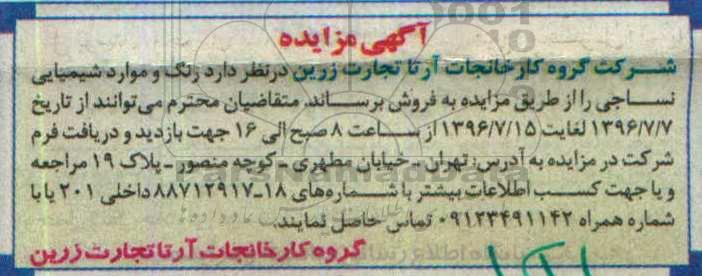 آگهی مزایده
شرکت گروه کارخانجات آرتا تجارت زرین درنظر دارد رنگ و موارد شیمیایی
نساجی را از طریق مزایده به فروش برساند. متقاضیان محترم می‌توانند از تاریخ
۱۳۹۶/۷/۷ لغایت ۱۳۹۶/۷/۱۵ از ساعت ۸ صبح الی ۱۶ جهت بازدید و دریافت فرم
شرکت در مزایده به آدرس: تهران - خیابان مطهری - کوچه منصور - پلاک ۱۹ مراجعه
و یا جهت کسب اطلاعات بیشتر با شماره‌های ۱۸-۸۸۷۱۲۹۱۷ داخلی ۲۰۱ یا با
شماره همراه ۰۹۱۲۳۴۹۱۱۴۲ تماس حاصل نمایند.
گروه کارخانجات آرتا تجارت زرین